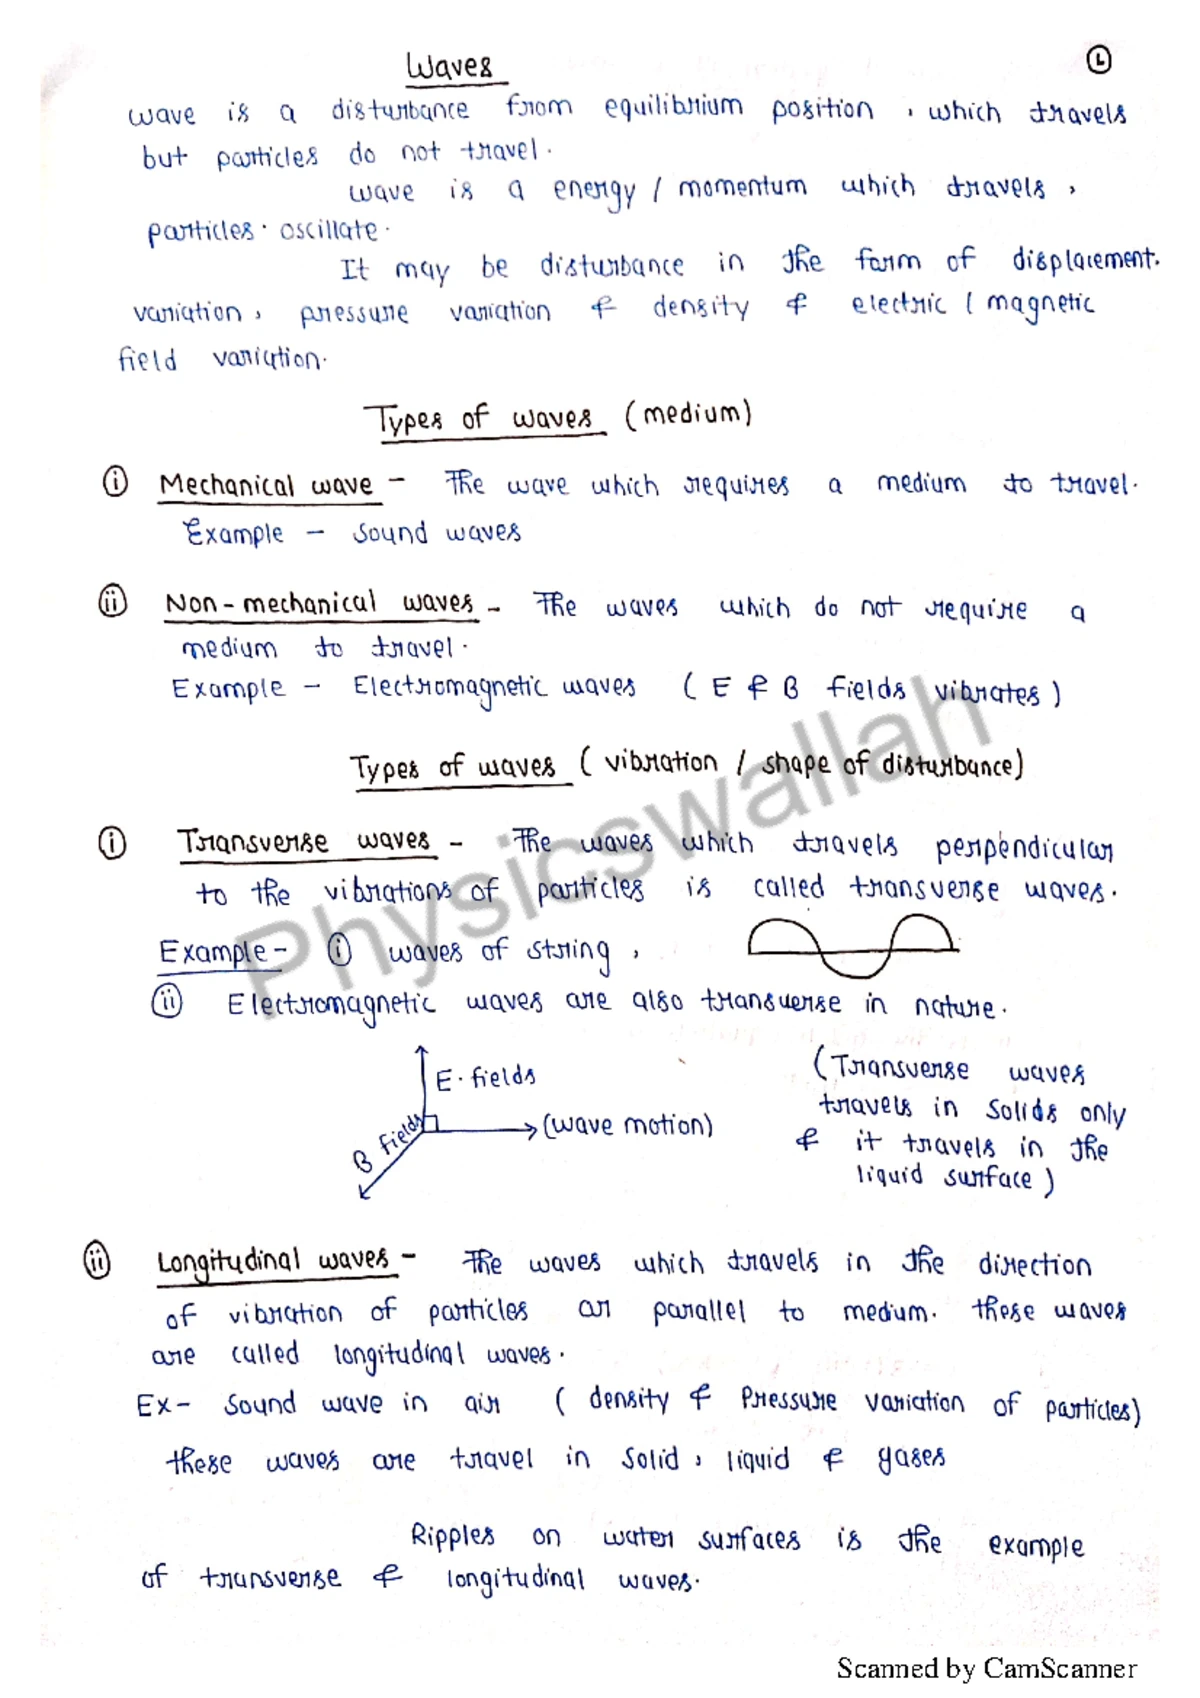 Waves
1
wave is a disturbance from equilibrium position , which travels
but particles do not travel.
wave is a energy / momentum which travels ,
particles. oscillate.
It may be disturbance in the form of displacement.
variation, pressure variation & density & electric / magnetic
field variation.
Types of waves (medium)
(i) Mechanical wave - The wave which requires a medium to travel.
Example - Sound waves
(ii) Non-mechanical waves - The waves which do not require a
medium to travel.
Example - Electromagnetic waves ( E & B fields vibrates )
Types of waves ( vibration / shape of disturbance)
(i) Transverse waves - The waves which travels perpendicular
to the vibrations of particles is called transverse waves.
Example - (i) waves of string ,
(ii) Electromagnetic waves are also transverse in nature.
E. fields
B fields
(wave motion)
(Transverse waves
travels in solids only
& it travels in the
liquid surface )
(ii) Longitudinal waves - The waves which travels in the direction
of vibration of particles or parallel to medium. these waves
are called longitudinal waves.
Ex - Sound wave in air ( density & Pressure variation of particles)
these waves are travel in solid , liquid & gases
Ripples on water surfaces is the example
of transverse & longitudinal waves.
Physicswallah
Scanned by CamScanner